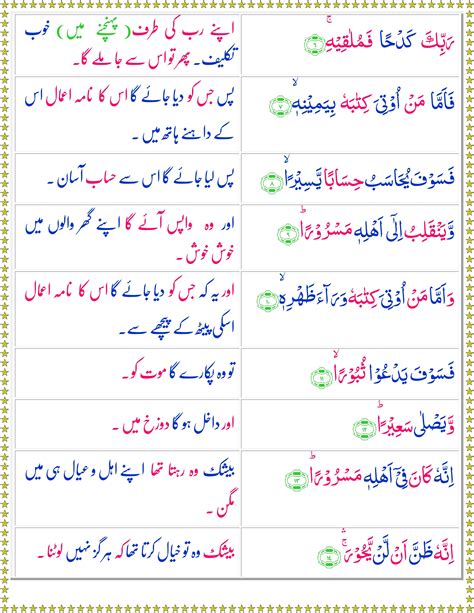 رَبِّكَ كَدْحًا فَمُلٰقِيْهِۚ ﴿٦﴾
اپنے رب کی طرف( پہنچنے میں) خوب
تکلیف۔ پھر تو اس سے جا ملے گا۔
فَاَمَّا مَنْ اُوْتِىَ كِتٰبَهٗ بِيَمِيْنِهٖۙ ﴿٧﴾
پس جس کو دیا جائے گا اس کا نامہ اعمال اس
کے داہنے ہاتھ میں۔
فَسَوْفَ يُحَاسَبُ حِسَابًا يَّسِيْرًاۙ ﴿٨﴾
پس لیا جائے گا اس سے حساب آسان۔
وَّيَنْقَلِبُ اِلٰٓى اَهْلِهٖ مَسْرُوْرًاؕ ﴿٩﴾
اور وہ واپس آئے گا اپنے گھر والوں میں
خوش خوش۔
وَاَمَّا مَنْ اُوْتِىَ كِتٰبَهٗ وَرَآءَ ظَهْرِهٖۙ ﴿١٠﴾
اور یہ کہ جس کو دیا جائے گا اس کا نامہ اعمال
اسکی پیٹھ کے پیچھے سے۔
فَسَوْفَ يَدْعُوْا ثُبُوْرًاۙ ﴿١١﴾
تو وہ پکارے گا موت کو۔
وَّيَصْلٰى سَعِيْرًاؕ ﴿١٢﴾
اور داخل ہو گا دوزخ میں۔
اِنَّهٗ كَانَ فِىْۤ اَهْلِهٖ مَسْرُوْرًاؕ ﴿١٣﴾
بیشک وہ رہتا تھا اپنے اہل و عیال ہی میں
مگن۔
اِنَّهٗ ظَنَّ اَنْ لَّنْ يَّحُوْرَۚ ﴿١٤﴾
بیشک وہ تو خیال کرتا تھا کہ ہر گز نہیں لوٹنا۔